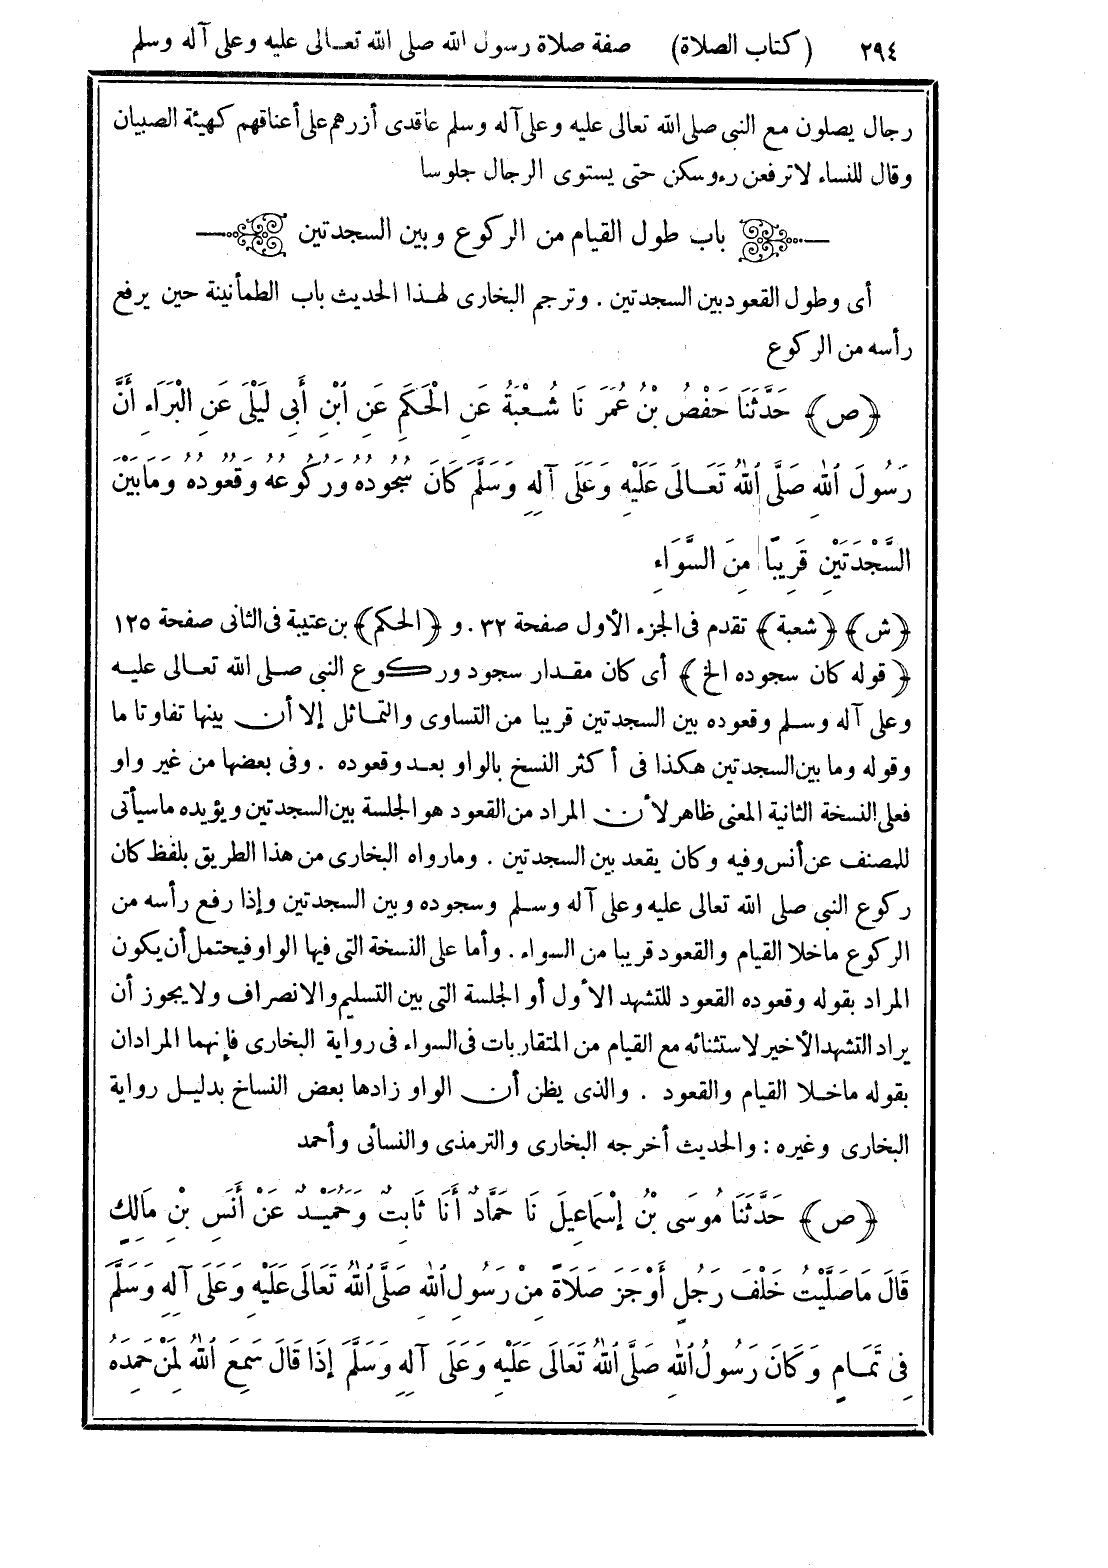 ٢٩٤ (كتاب الصلاة) صفة صلاة رسول الله صلى الله تعالى عليه وعلى آله وسلم
رجال يصلون مع النبى صلى الله تعالى عليه وعلى آله وسلم عاقدى أزرهم على أعناقهم كهيئة الصبيان
وقال للنساء لا ترفعن رءوسكن حتى يستوى الرجال جلوسا
باب طول القيام من الركوع وبين السجدتين
أى وطول القعود بين السجدتين . وترجم البخارى لهذا الحديث باب الطمأنينة حين يرفع
رأسه من الركوع
﴿ص﴾ حَدَّثَنَا حَفْصُ بْنُ عُمَرَ نَا شُعْبَةُ عَنِ الْحَكَمِ عَنِ ابْنِ أَبِى لَيْلَى عَنِ الْبَرَاءِ أَنَّ
رَسُولَ اللهِ صَلَّى اللهُ تَعَالَى عَلَيْهِ وَعَلَى آلِهِ وَسَلَّمَ كَانَ سُجُودُهُ وَرُكُوعُهُ وَقُعُودُهُ وَمَا بَيْنَ
السَّجْدَتَيْنِ قَرِيبًا مِنَ السَّوَاءِ
﴿ش﴾ ﴿شعبة﴾ تقدم فى الجزء الأول صفحة ٣٢ . و ﴿الحكم﴾ بن عتيبة فى الثانى صفحة ١٢٥
﴿قوله كان سجوده الخ﴾ أى كان مقدار سجود وركوع النبى صلى الله تعالى عليه
وعلى آله وسلم وقعوده بين السجدتين قريبا من التساوى والتماثل إلا أن بينها تفاوتا ما
وقوله وما بين السجدتين هكذا فى أكثر النسخ بالواو بعد وقعوده . وفى بعضها من غير واو
فعلى النسخة الثانية المعنى ظاهر لأن المراد من القعود هو الجلسة بين السجدتين ويؤيده ما سيأتى
للمصنف عن أنس وفيه وكان يقعد بين السجدتين . وما رواه البخارى من هذا الطريق بلفظ كان
ركوع النبى صلى الله تعالى عليه وعلى آله وسلم وسجوده وبين السجدتين وإذا رفع رأسه من
الركوع ماخلا القيام والقعود قريبا من السواء . وأما على النسخة التى فيها الواو فيحتمل أن يكون
المراد بقوله وقعوده القعود للتشهد الأول أو الجلسة التى بين التسليم والانصراف ولا يجوز أن
يراد التشهد الأخير لاستثنائه مع القيام من المتقاربات فى السواء فى رواية البخارى فإنهما المرادان
بقوله ماخلا القيام والقعود . والذى يظن أن الواو زادها بعض النساخ بدليل رواية
البخارى وغيره : والحديث أخرجه البخارى والترمذى والنسائى وأحمد
﴿ص﴾ حَدَّثَنَا مُوسَى بْنُ إِسْمَاعِيلَ نَا حَمَّادٌ أَنَا ثَابِتٌ وَحُمَيْدٌ عَنْ أَنَسِ بْنِ مَالِكٍ
قَالَ مَا صَلَّيْتُ خَلْفَ رَجُلٍ أَوْجَزَ صَلَاةً مِنْ رَسُولِ اللهِ صَلَّى اللهُ تَعَالَى عَلَيْهِ وَعَلَى آلِهِ وَسَلَّمَ
فِى تَمَامٍ وَكَانَ رَسُولُ اللهِ صَلَّى اللهُ تَعَالَى عَلَيْهِ وَعَلَى آلِهِ وَسَلَّمَ إِذَا قَالَ سَمِعَ اللهُ لِمَنْ حَمِدَهُ